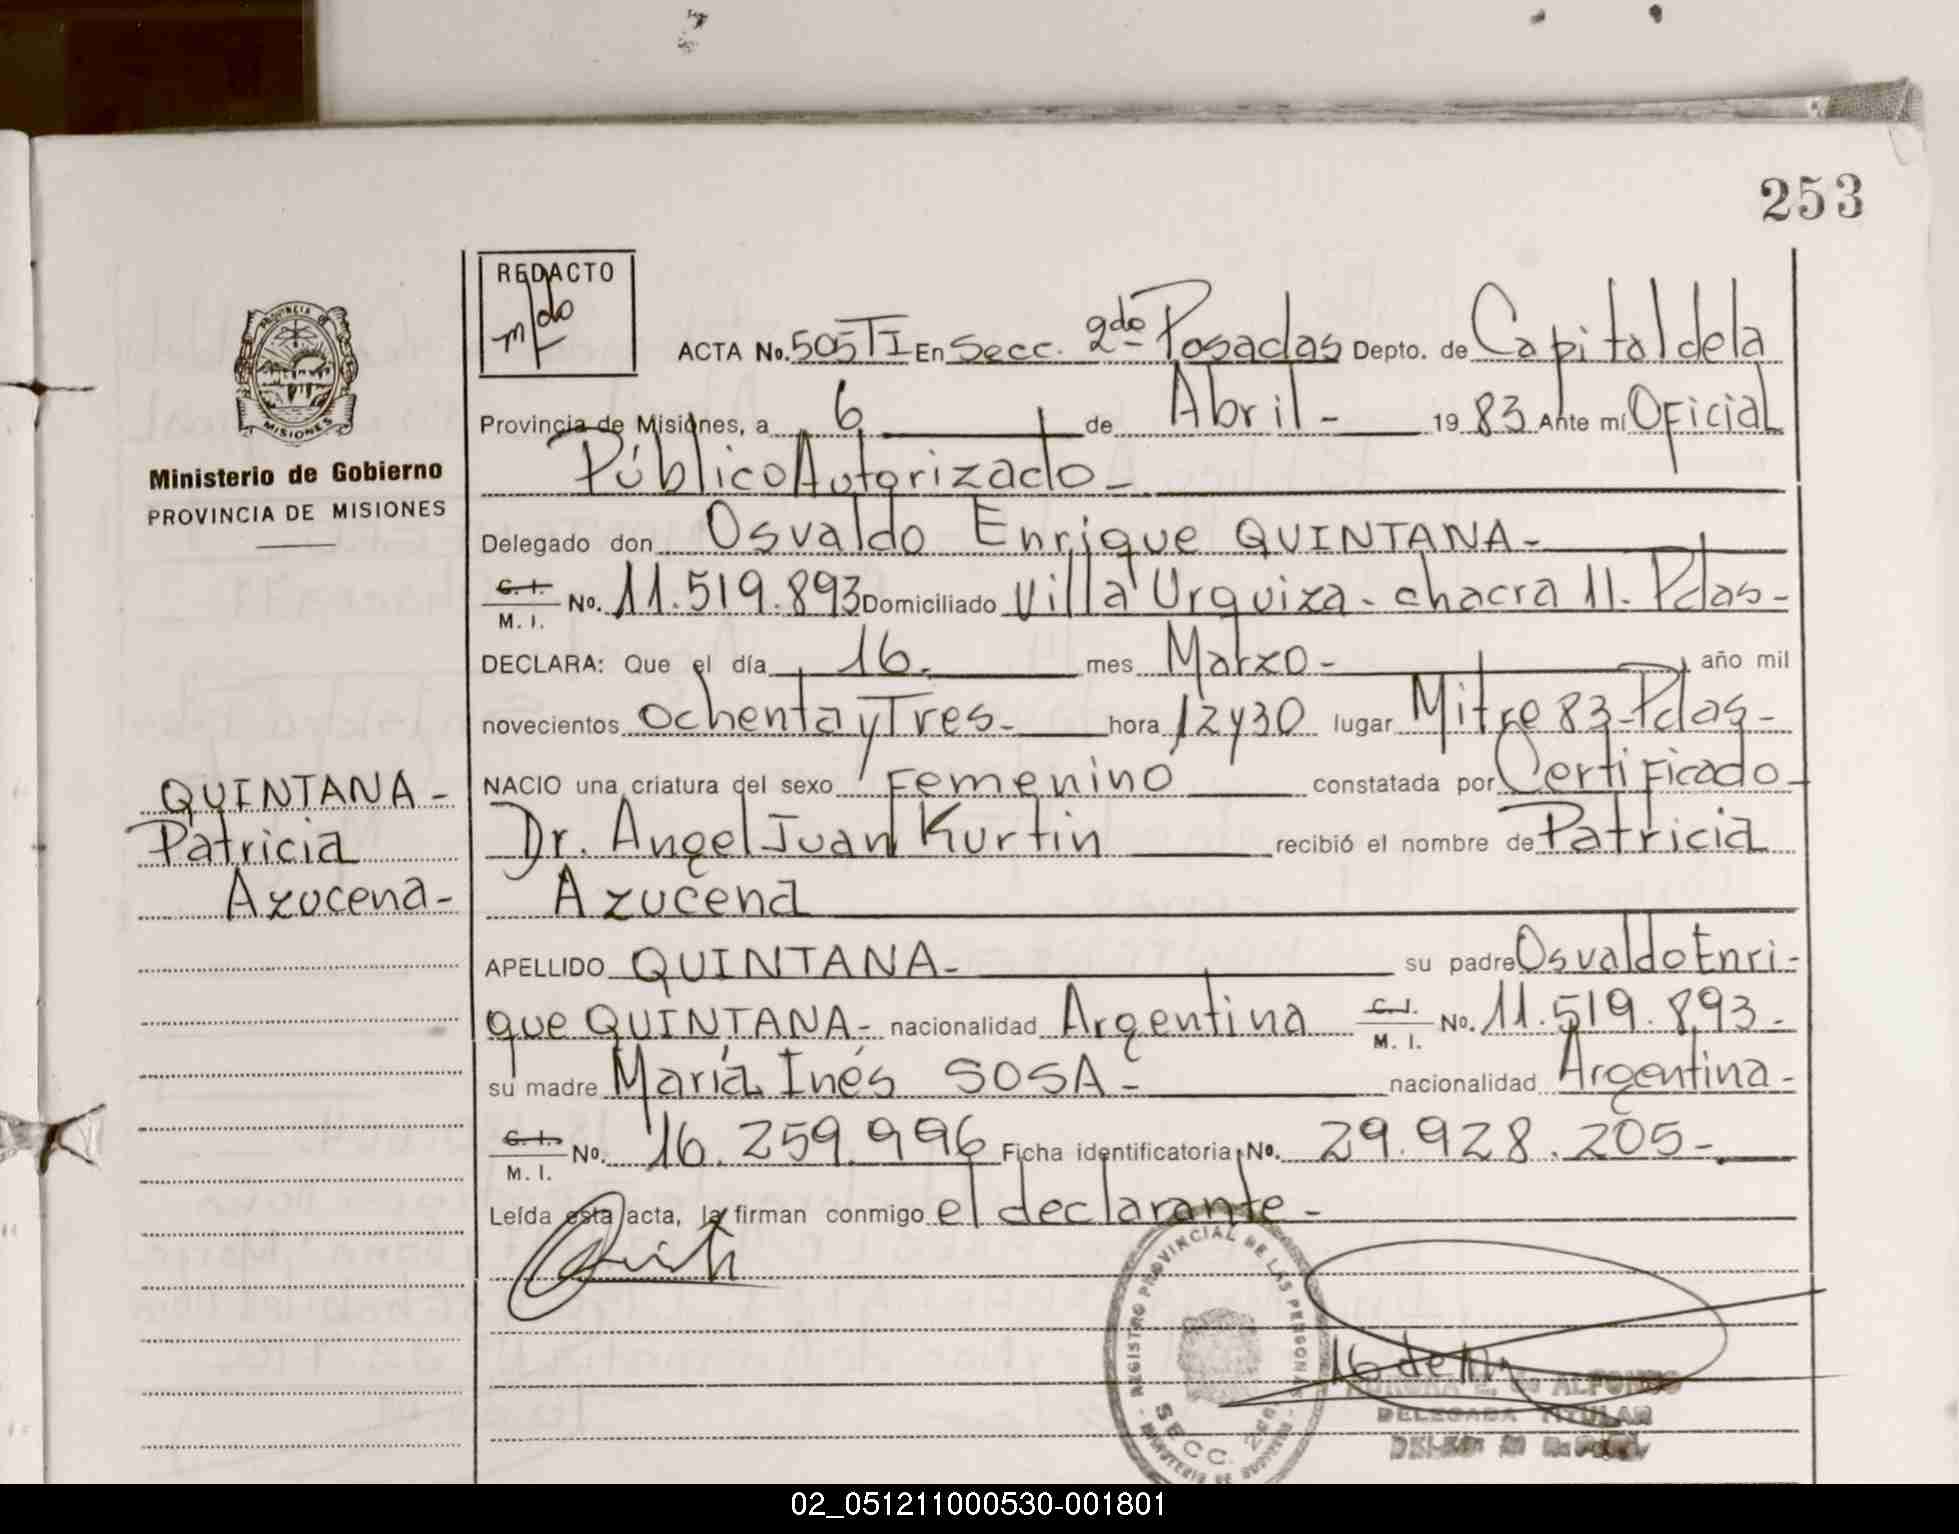 253
REDACTO
ACTA No. 505 TI En Secc. 2da Posadas Depto. de Capital de la
Provincia de Misiones, a 6 de Abril - 1983 Ante mí Oficial
Público Autorizado -
Delegado don Osvaldo Enrique QUINTANA -
C. I. / M. I. No. 11.519.893 Domiciliado Villa Urquiza - chacra 11. Pdas -
DECLARA: Que el día 16 - mes Marzo - año mil
novecientos ochenta y Tres - hora 12 y 30 lugar Mitre 83 - Pdas -
NACIO una criatura del sexo Femenino constatada por Certificado -
Dr. Angel Juan Kurtin recibió el nombre de Patricia
Azucena
APELLIDO QUINTANA - su padre Osvaldo Enri-
que QUINTANA - nacionalidad Argentina C. I. / M. I. No. 11.519.893 -
su madre María Inés SOSA - nacionalidad Argentina -
C. I. / M. I. No. 16.259.996 Ficha identificatoria No. 29.928.205 -
Leída esta acta, la firman conmigo el declarante -
PROVINCIA DE MISIONES
Ministerio de Gobierno
PROVINCIA DE MISIONES
QUINTANA -
Patricia
Azucena -
REGISTRO PROVINCIAL DE LAS PERSONAS
SECC. 2da
DE ALFONSO
DELEGADA TITULAR
02_051211000530-001801